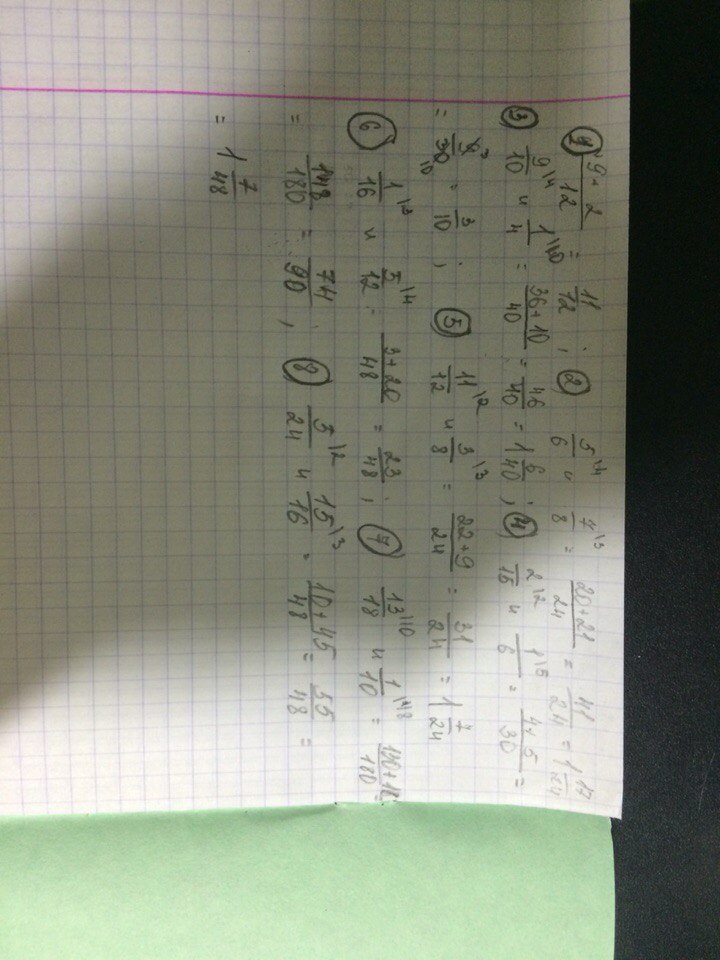 ① 9+2/12 = 11/12; ② 5/6 \4 и 7/8 \3 = 20+21/24 = 41/24 = 1 17/24
③ 9/10 \4 и 1/4 \10 = 36+10/40 = 46/40 = 1 6/40; ④ 2/15 \2 и 1/6 \5 = 4+5/30 =
= 9/30 = 3/10; ⑤ 11/12 \2 и 3/8 \3 = 22+9/24 = 31/24 = 1 7/24
⑥ 1/16 \3 и 5/12 \4 = 3+20/48 = 23/48; ⑦ 13/18 \10 и 1/10 \18 = 130+18/180
= 148/180 = 74/90; ⑧ 5/24 \2 и 15/16 \3 = 10+45/48 = 55/48 =
= 1 7/48